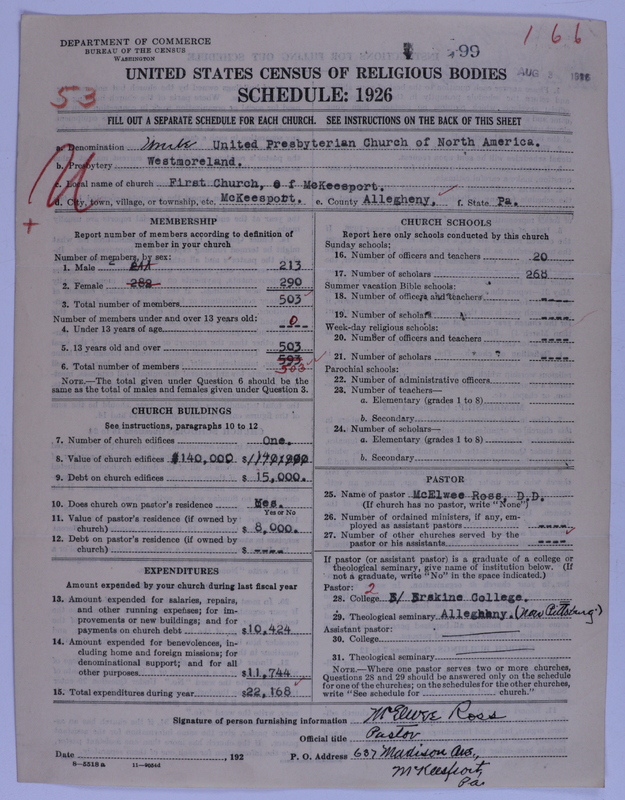 DEPARTMENT OF COMMERCE
BUREAU OF THE CENSUS
WASHINGTON
99
166
AUG 3 1926
53
UNITED STATES CENSUS OF RELIGIOUS BODIES
SCHEDULE: 1926
FILL OUT A SEPARATE SCHEDULE FOR EACH CHURCH. SEE INSTRUCTIONS ON THE BACK OF THIS SHEET
a. Denomination United Presbyterian Church of North America.
b. Presbytery Westmoreland.
c. Local name of church First Church, of McKeesport.
d. City, town, village, or township, etc. McKeesport. e. County Allegheny, f. State Pa.
MEMBERSHIP
Report number of members according to definition of
member in your church
Number of members, by sex:
1. Male 213
2. Female 288 290
3. Total number of members 503
Number of members under and over 13 years old:
4. Under 13 years of age 0
5. 13 years old and over 503
6. Total number of members 593 503
NOTE.—The total given under Question 6 should be the
same as the total of males and females given under Question 3.
CHURCH BUILDINGS
See instructions, paragraphs 10 to 12
7. Number of church edifices One.
8. Value of church edifices $140,000 $
9. Debt on church edifices $15,000.
10. Does church own pastor's residence Yes.
Yes or No
11. Value of pastor's residence (if owned by
church) $8,000.
12. Debt on pastor's residence (if owned by
church) $ ----
EXPENDITURES
Amount expended by your church during last fiscal year
13. Amount expended for salaries, repairs,
and other running expenses; for im-
provements or new buildings; and for
payments on church debt $10,424
14. Amount expended for benevolences, in-
cluding home and foreign missions; for
denominational support; and for all
other purposes $11,744
15. Total expenditures during year $22,168
CHURCH SCHOOLS
Report here only schools conducted by this church
Sunday schools:
16. Number of officers and teachers 20
17. Number of scholars 268
Summer vacation Bible schools:
18. Number of officers and teachers ----
19. Number of scholars ----
Week-day religious schools:
20. Number of officers and teachers ----
21. Number of scholars ----
Parochial schools:
22. Number of administrative officers
23. Number of teachers—
a. Elementary (grades 1 to 8)
b. Secondary
24. Number of scholars—
a. Elementary (grades 1 to 8)
b. Secondary
PASTOR
25. Name of pastor McElwee Ross, D.D.
(If church has no pastor, write "None")
26. Number of ordained ministers, if any, em-
ployed as assistant pastors ----
27. Number of other churches served by the
pastor or his assistants ----
If pastor (or assistant pastor) is a graduate of a college or
theological seminary, give name of institution below. (If
not a graduate, write "No" in the space indicated.)
Pastor: 2
28. College Erskine College.
29. Theological seminary Allegheny. (now Pittsburg)
Assistant pastor:
30. College
31. Theological seminary
NOTE.—Where one pastor serves two or more churches,
Questions 28 and 29 should be answered only on the schedule
for one of the churches; on the schedules for the other churches,
write "See schedule for church."
Signature of person furnishing information McElwee Ross
Official title Pastor
Date , 192 P. O. Address 637 Madison Ave.,
McKeesport,
Pa.
8—5518 a 11—9054d